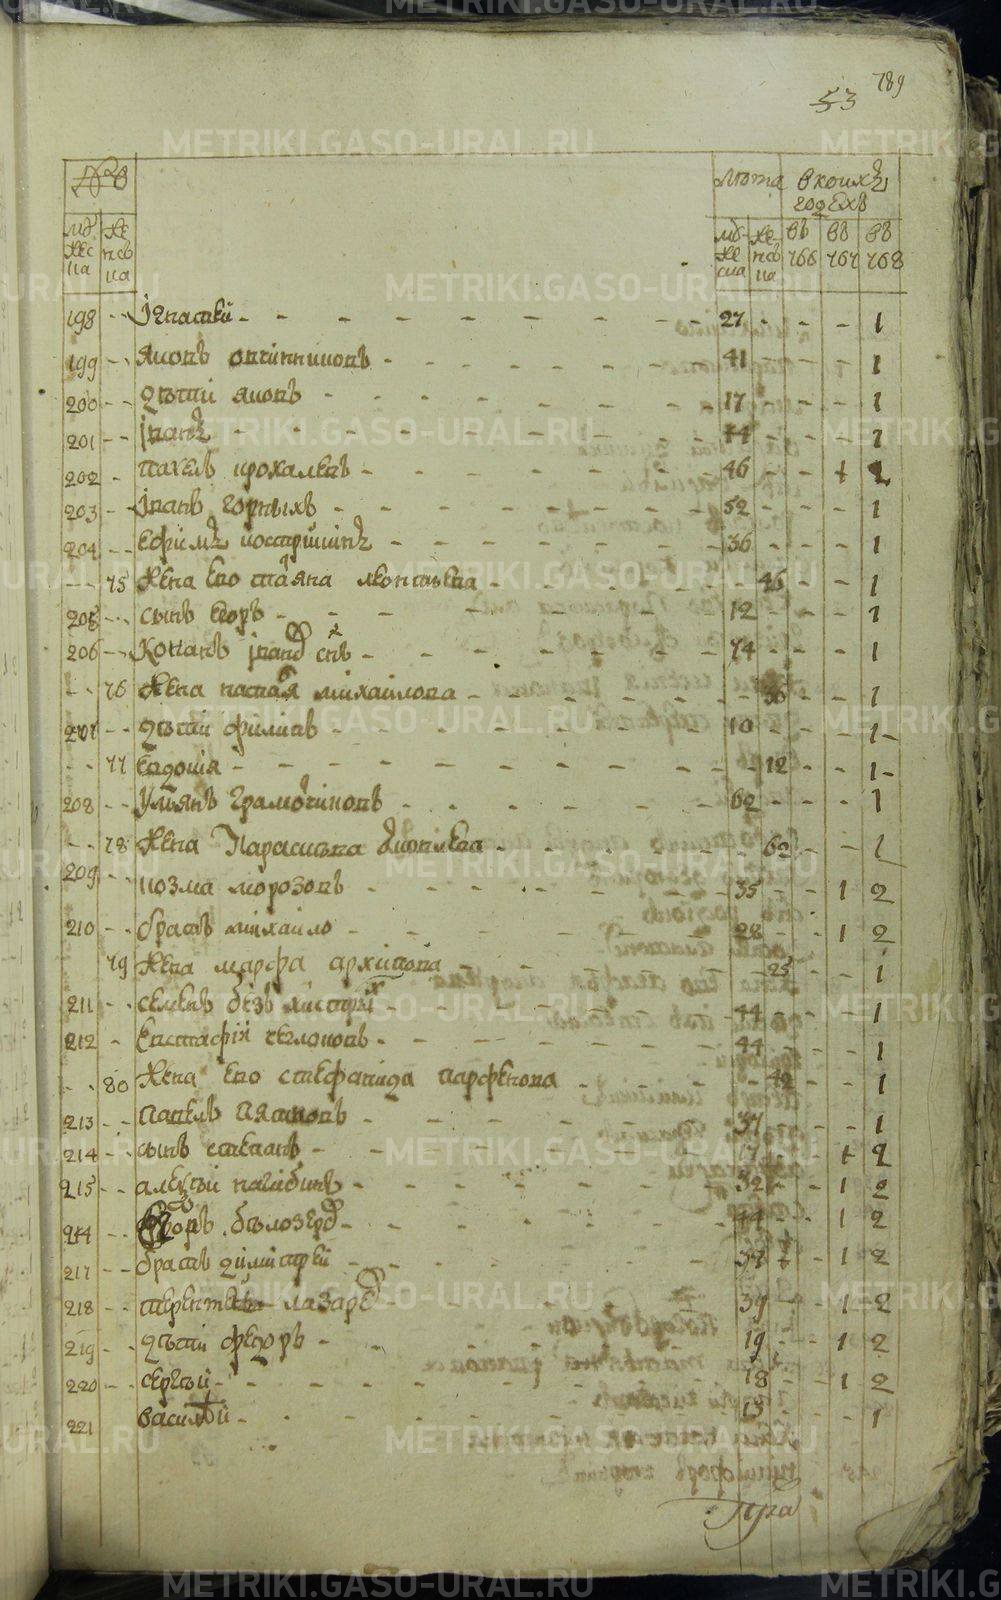 METRIKI.GASO-URAL.RU
789
53
№
лѣта в коихъ годѣхъ
мужеска женска
мужеска женска въ 766 въ 767 въ 768
198 - - Iгнатеи - 27 - - - 1
199 - - Яковъ овчинниковъ - 41 - - - 1
200 - - дѣти яковъ - 17 - - - 1
201 - - Iванъ - 14 - - - 1
202 - павелъ - 46 - - 1 2
203 - - Iванъ горныхъ - 52 - - - 1
204 - - ефимъ вострикинъ - 36 - - - 1
- - 75 Жена ево татяна леонтьева - 46 - - 1
205 - - сынъ егоръ - 12 - - - 1
206 - - Кононъ Iванов снъ - 74 - - - 1
- - 76 Жена настася михаилова - 50 - - 1
207 - - дѣти филипъ - 10 - - - 1
- - 77 евдокия - 12 - - 1
208 - - Ульянъ грамотчиковъ - 62 - - - 1
- - 78 Жена Парасковья Яковлева - 62 - - 1
209 - - козма морозовъ - 35 - - 1 2
210 - - братъ михаило - 28 - - 1 2
79 Жена марфа архипова - 25 - - 1
211 - - семенъ - 44 - - - 1
212 - евстафiй чегловъ - 44 - - - 1
- - 80 Жена ево стефанида парфенова - 42 - - 1
213 - - павелъ пятковъ - 37 - - - 1
214 - - сынъ степанъ - 17 - - 1 2
215 - - алексѣи нагибинъ - 32 - - 1 2
егоръ бѣлозеров - 44 - - 1 2
217 - - братъ димитреи - 37 - - 1 2
218 - - терентеи лазарев - 39 - - 1 2
219 - - дѣти федоръ - 19 - - 1 2
220 - - сергѣи - 18 - - 1 2
221 василѣи - 13 - - - 1